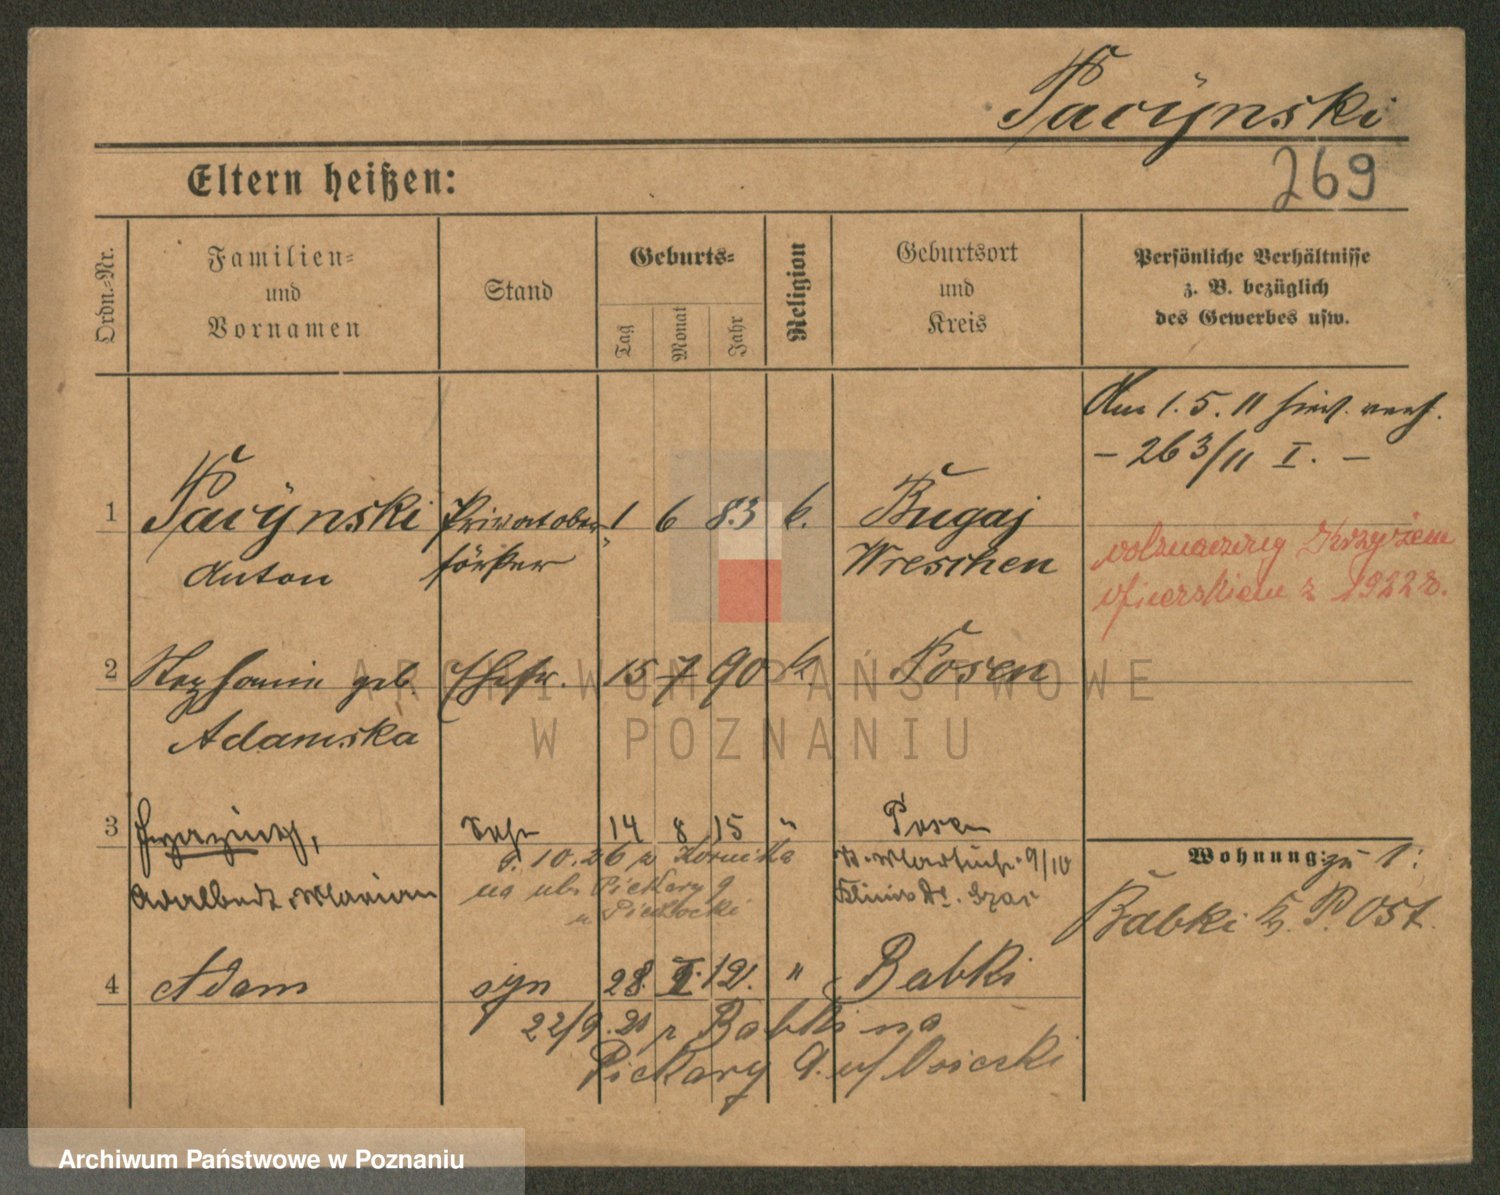 Pacÿnski
269
Eltern heißen:
Ordn.-Nr.
Familien-
und
Vornamen
Stand
Geburts-
Tag
Monat
Jahr
Religion
Geburtsort
und
Kreis
Persönliche Verhältnisse
z. B. bezüglich
des Gewerbes usw.
Am 1. 5. 11
– 263/11 I. –
1 Pacÿnski Privatober- 1 6 83 k. Bugaj
Anton förster Wreschen
odznaczony Krzyżem
oficerskim z 1922 r.
2 Stephanie geb. Ehefr. 15 7 90 k Posen
Adamska
3 Sohn 14 8 15 " Posen
Adalbert Marian
9.10.26 z Kórnika
na ul. Piekary 9
Klinik Dr.
9/10
Wohnung: zu 1:
Babki Kr. P. Ost.
4 Adam syn 28. 121. " Babki
22/9. 21 z Babki na
Piekary 9.
ARCHIWUM PAŃSTWOWE
W POZNANIU
Archiwum Państwowe w Poznaniu